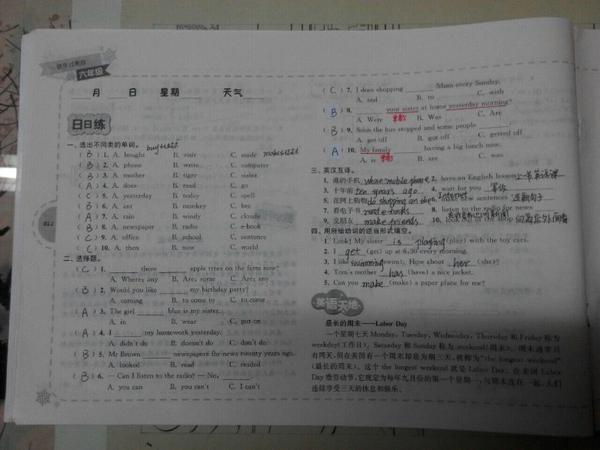 快乐过寒假
六年级
月 日 星期 天气
日日练
一、选出不同类的单词。
( B ) 1. A. bought B. visit C. made
( B ) 2. A. phone B. watch C. computer
( B ) 3. A. mother B. tiger C. sister
( A ) 4. A. does B. read C. go
( A ) 5. A. yesterday B. today C. spell
( B ) 6. A. ant B. monkey C. bee
( A ) 7. A. rain B. windy C. cloudy
( B ) 8. A. newspaper B. radio C. e-book
( C ) 9. A. office B. school C. sentence
( C ) 10. A. then B. now C. world
二、选择题。
( C ) 1. there apple trees on the farm now?
A. Where; any B. Are; some C. Are; any
( B ) 2. Would you like my birthday party?
A. coming B. to come to C. to come
( A ) 3. The girl blue is my sister.
A. in B. wear C. put on
( A ) 4. I my homework yesterday.
A. didn't do B. doesn't do C. don't do
( B ) 5. Mr Brown newspapers for news twenty years ago.
A. looked B. read C. readed
( B ) 6. — Can I listen to the radio? — No,
A. you can B. you can't C. I can't
( C ) 7. I does shopping Mum every Sunday.
A. and B. to C. with
( B ) 8. your sister at home yesterday morning?
A. Were B. Was C. Are
( B ) 9. Soon the bus stopped and some people
A. get off B. got off C. getted off
( A ) 10. My family having a big lunch now.
A. is B. are C. was
三、英汉互译。
1. 谁的手机 whose mobile phone 2. have an English lesson 上一节英语课
3. 十年前 ten years ago 4. wait for you 等你
5. 在网上购物 do shopping on the Internet new sentences 造新句子
7. 看电子书 read e-books 8. listen to the radio for news
9. 交朋友 make friends 10.
四、用所给动词的适当形式填空。
1. Look! My sister is playing (play) with the toy cars.
2. I get (get) up at 6:30 every morning.
3. I like swimming (swim). How about her (she)?
4. Tom's mother has (have) a nice jacket.
5. Can you make (make) a paper plane for me?
英语天地
最长的周末——Labor Day
一个星期七天 Monday, Tuesday, Wednesday, Thursday 和 Friday 称为
weekday(工作日), Saturday 和 Sunday 称为 weekend(周末)。周末通常只
有两天,但在美国有一个周末却是为期三天,被称为“the longest weekend”
(最长的周末)。这个 the longest weekend 就是 Labor Day, 在美国 Labor
Day 指劳动节,它规定为每年九月份的第一个星期一,与周末连在一起,人们
连续享受三天的休息和娱乐。